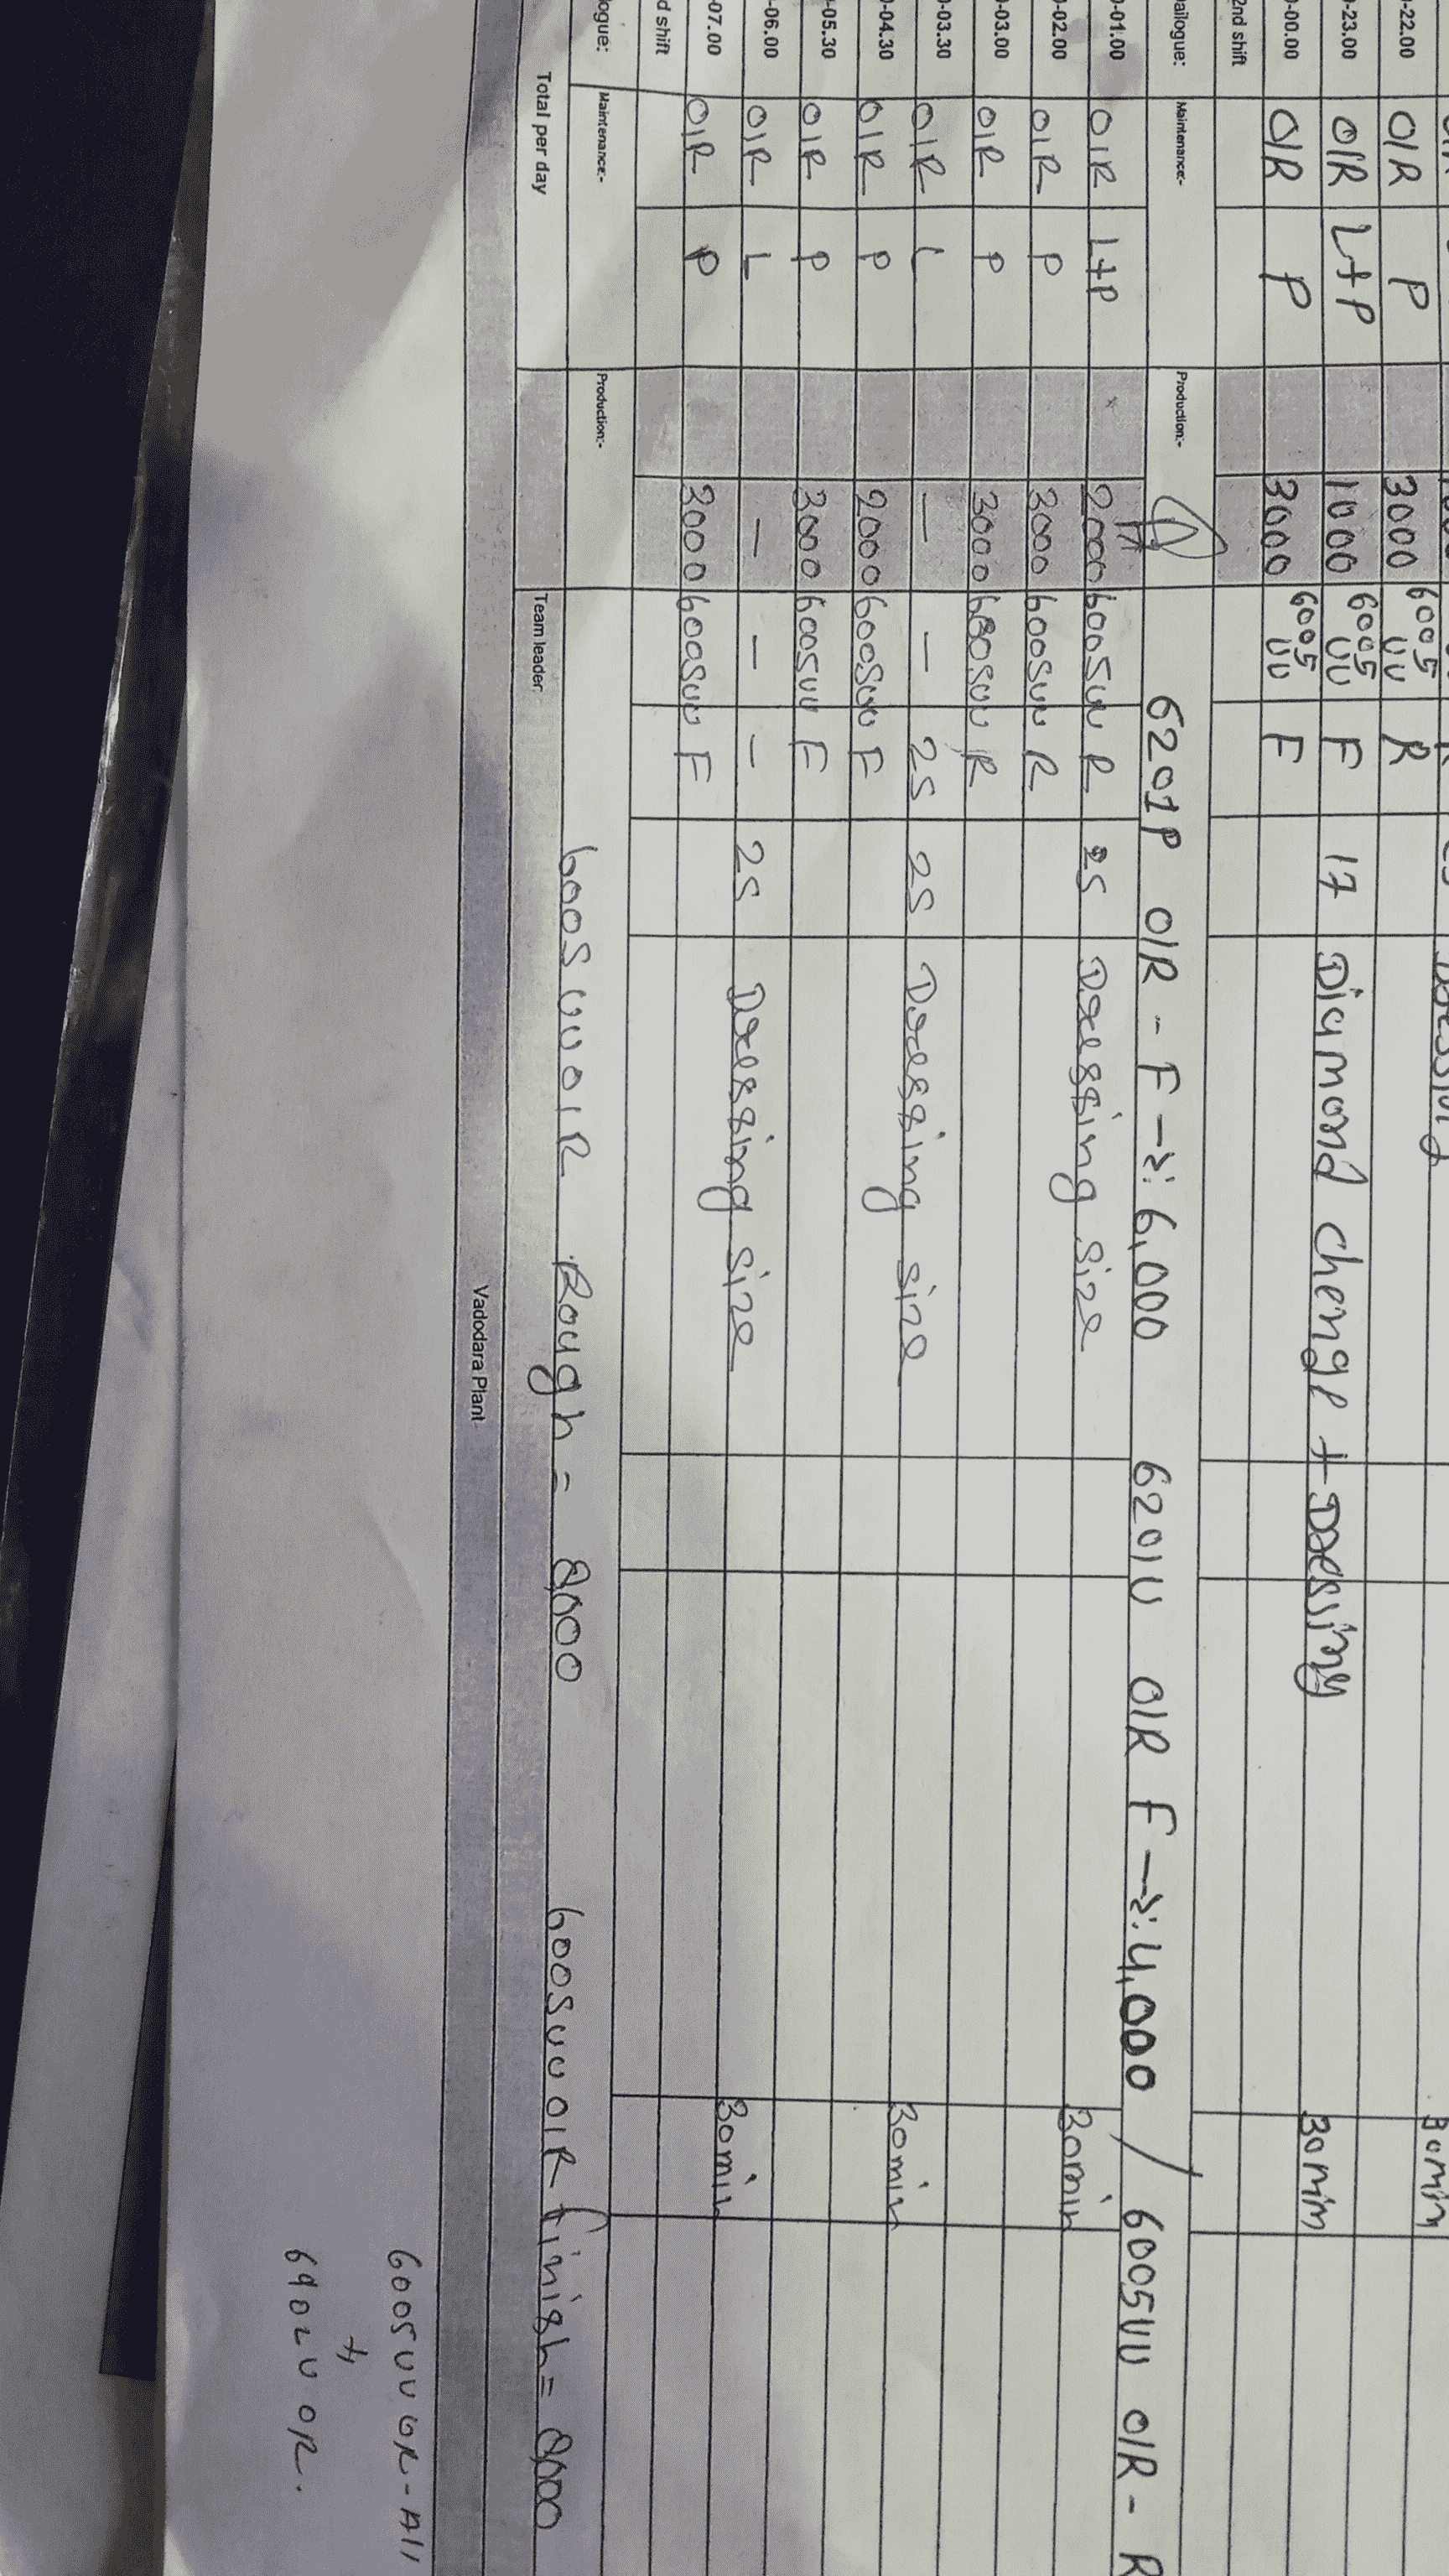 30min
-22.00 O/R P 3000 6005 UU R
-23.00 O/R L+P 1000 6005 UU F 17 Diamond chenge + Dressing 30min
-00.00 O/R P 3000 6005 UU F
2nd shift
Dailogue: Maintenance:- Production:- 6201P O/R - F → 6,000 6201U O/R F → 4,000 / 6005UU O/R - R
-01.00 O/R L+P 2000 6005UU R 25 Dressing size 30min
-02.00 O/R P 3000 6005UU R
-03.00 O/R P 3000 6005UU R
-03.30 O/R L - - 25 25 Dressing size 30min
-04.30 O/R P 2000 6005UU F
-05.30 O/R P 3000 6005UU F
-06.00 O/R L - - - 25 Dressing size 30min
-07.00 O/R P 3000 6005UU F
d shift
logue: Maintenance:- Production:- 6005UU O/R Rough = 8,000 6005UU O/R finish = 8,000
Total per day Team leader
Vadodara Plant
6005UU OR - All
6902U OR.